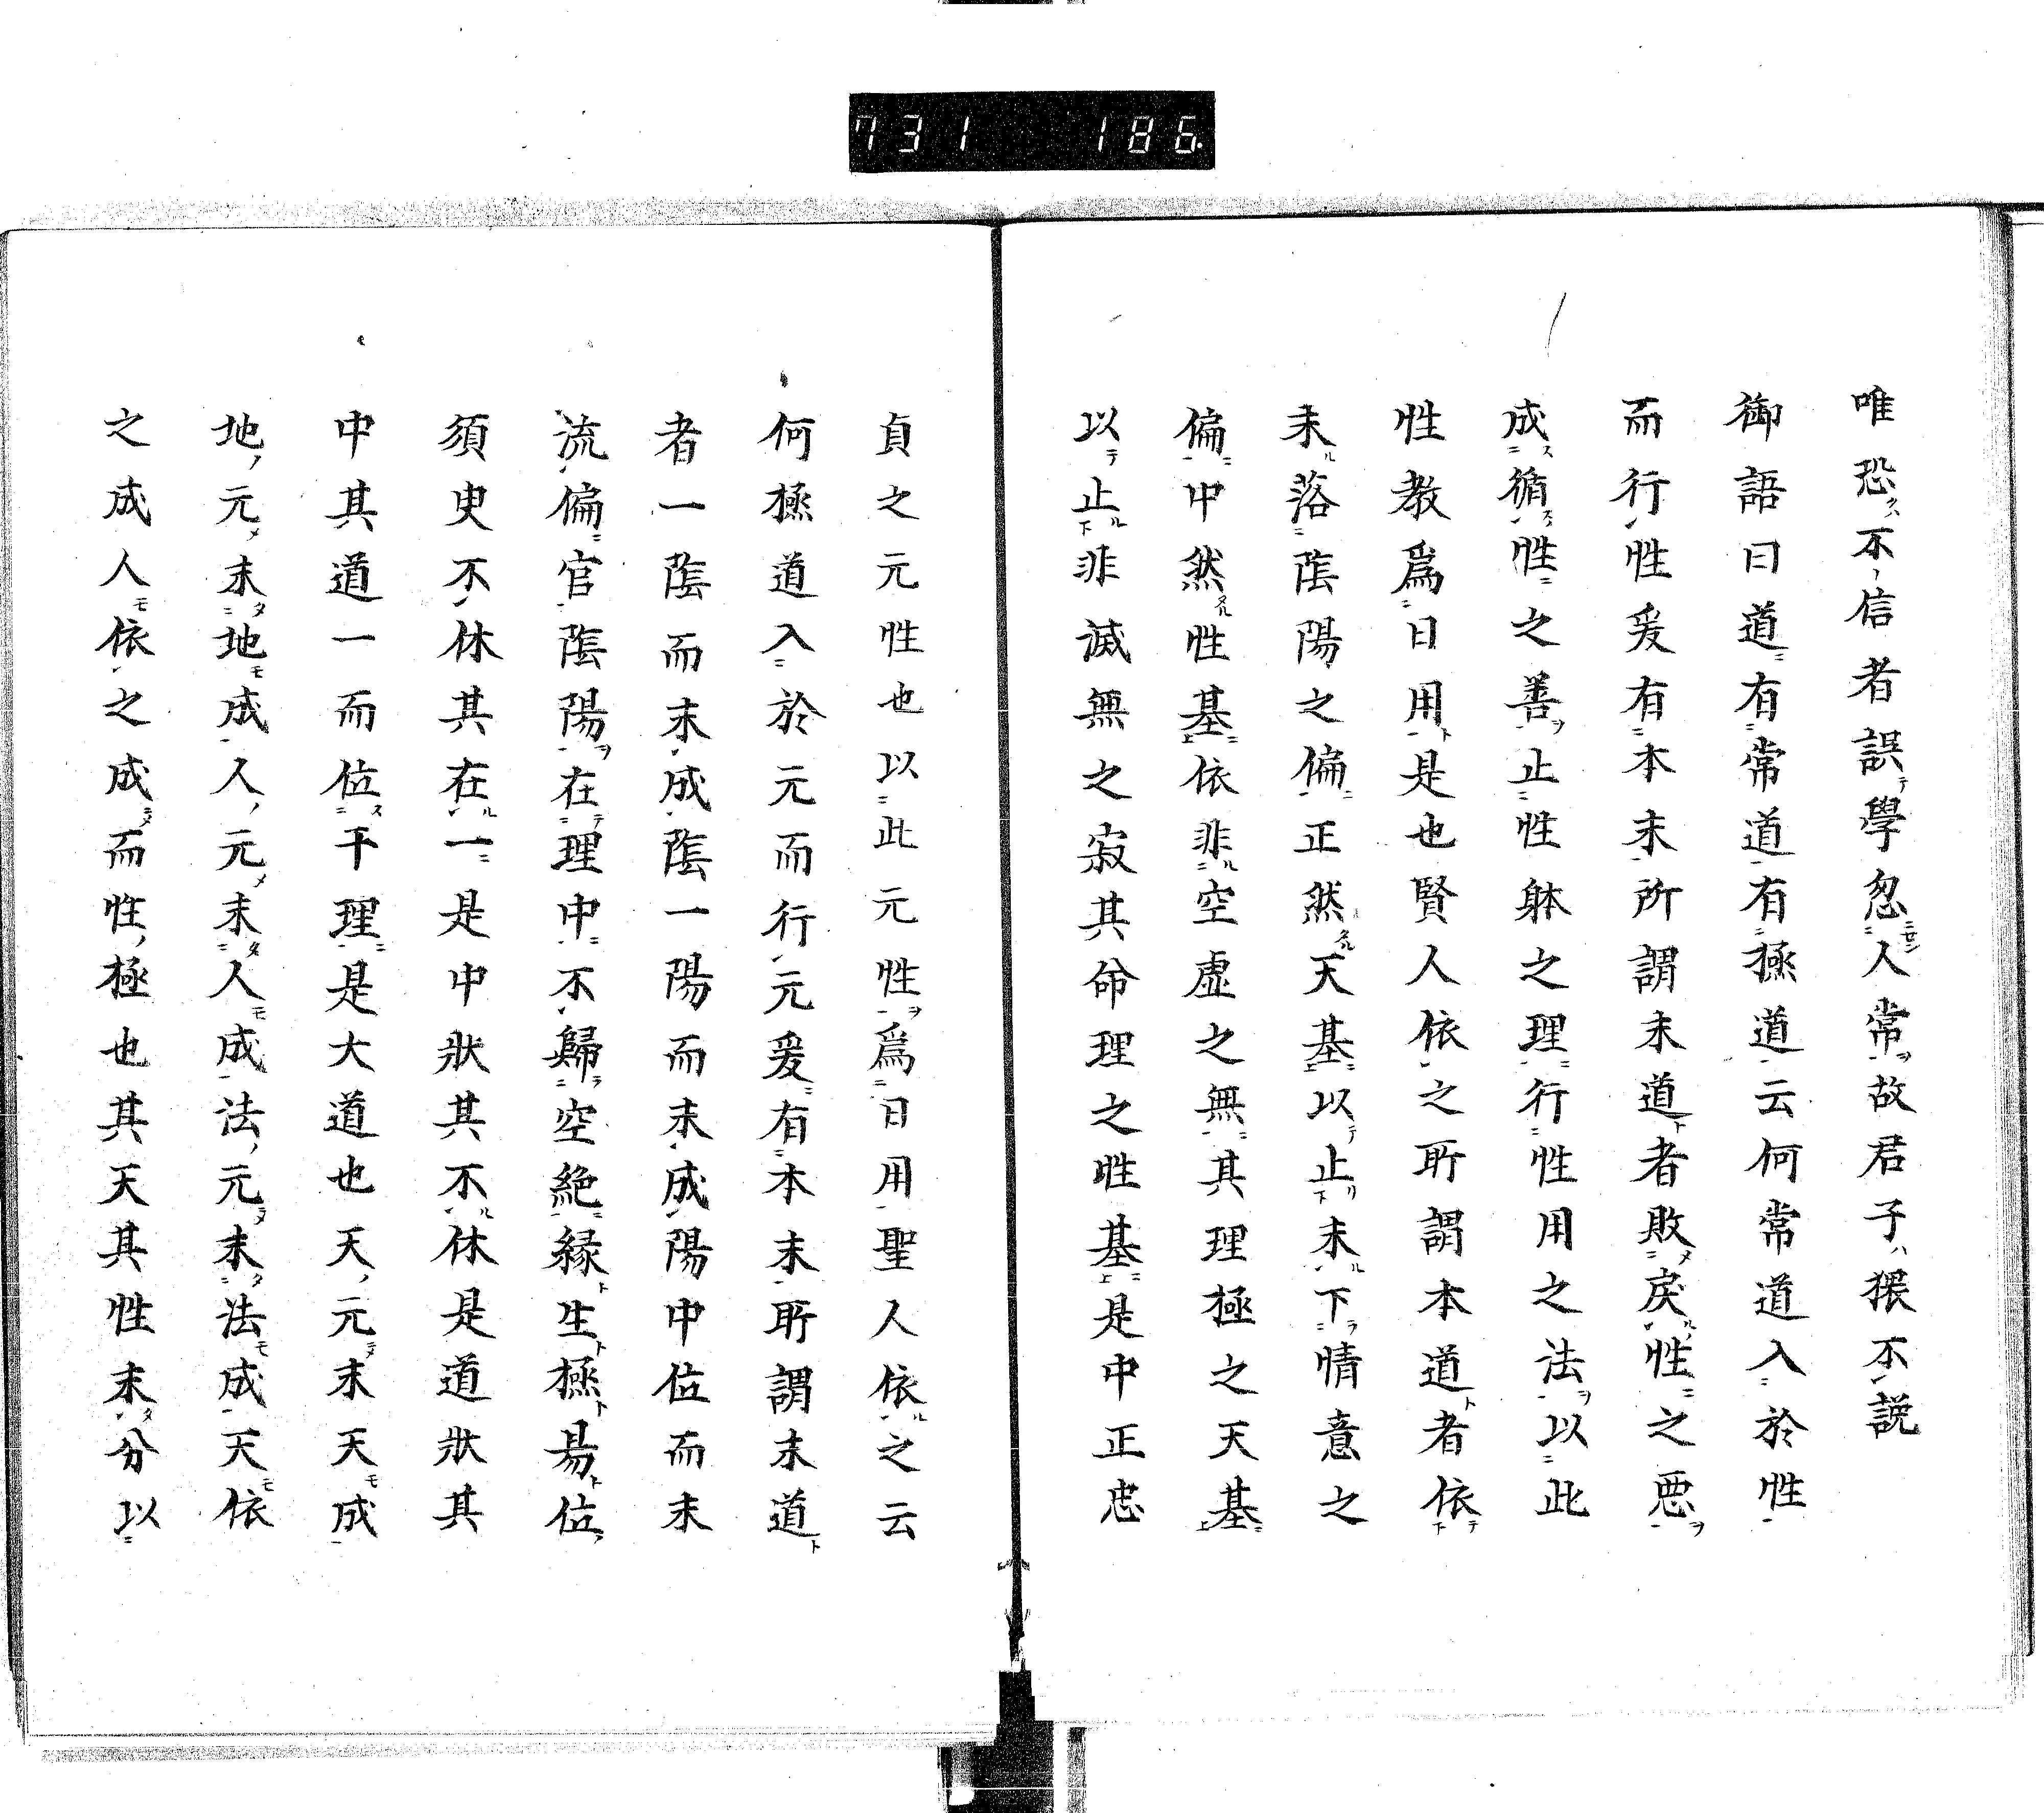 731 186
唯恐不信者誤學忽人常故君子猥不説
御語曰道有常道有極道云何常道入於性
而行性爰有本末所謂末道者敗戻性之悪
成循性之善止性躰之理行性用之法以此
性教爲日用是也賢人依之所謂本道者依
未落陰陽之偏正然天基以止未下情意之
偏中然性基依非空虚之無其理極之天基
以止非滅無之寂其命理之性基是中正忠
貞之元性也以此元性爲日用聖人依之云
何極道入於元而行元爰有本末所謂末道
者一陰而未成陰一陽而未成陽中位而未
流偏官陰陽在理中不歸空絶縁生極易位
須臾不休其在一是中狀其不休是道狀其
中其道一而位于理是大道也天元末天成
地元末地成人元末人成法元末法成天依
之成人依之成而性極也其天其性未分以